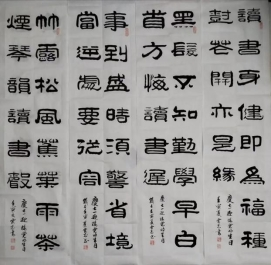 讀書身健即為福種
樹花開亦是緣
黑髮不知勤學早白
首方悔讀書遲
事到盛時須警省境
當逆處要從容
竹露松風蕉葉雨茶
煙琴韻讀書聲